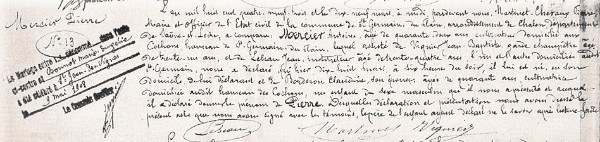 Mercier Pierre
N° 13
Le Mariage entre le dénommé dans l'acte
ci-contre et
a été célébré à St Jean des Vignes
le 9 mai 1908
Le Greffier
L'an mil huit cent quatre vingt huit et le dix neuf mars, à midi pardevant nous, Martinet
Maire et officier de l'Etat civil de la commune de St Germain du Plain, arrondissement de Chalon département
de Saône-et-Loire, a comparu Mercier histoire, âgé de quarante deux ans cultivateur domicilié aux
hameau de St Germain du Plain, lequel assisté de Vignier Jean Baptiste garde champêtre
de trente-un ans, et de Jean, instituteur, âgé de trente-quatre ans l'un et l'autre domiciliés audit
St Germain, nous a déclaré qu'hier dix huit mars, à huit heures du soir, il lui est né, en son
domicile audit et de Claudine son épouse, âgée de quarante ans, cultivatrice
domiciliée audit hameau, un enfant du sexe masculin qu'il nous a présenté et auquel
il a déclaré donner le prénom de Pierre. Desquelles déclaration et présentation nous avons dressé le
présent acte que nous avons signé avec les témoins, le père de l'enfant ayant déclaré ne le savoir après lecture faite
Martinet Vignier